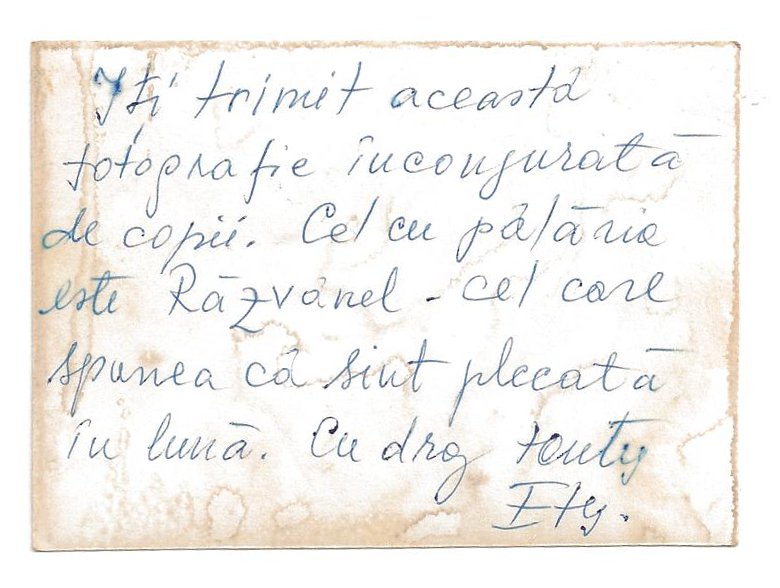 Iți trimit această
fotografie înconjurată
de copii. Cel cu pălăria
este Răzvănel - cel care
spunea că sînt plecată
în lună. Cu drag tanty
Ety.